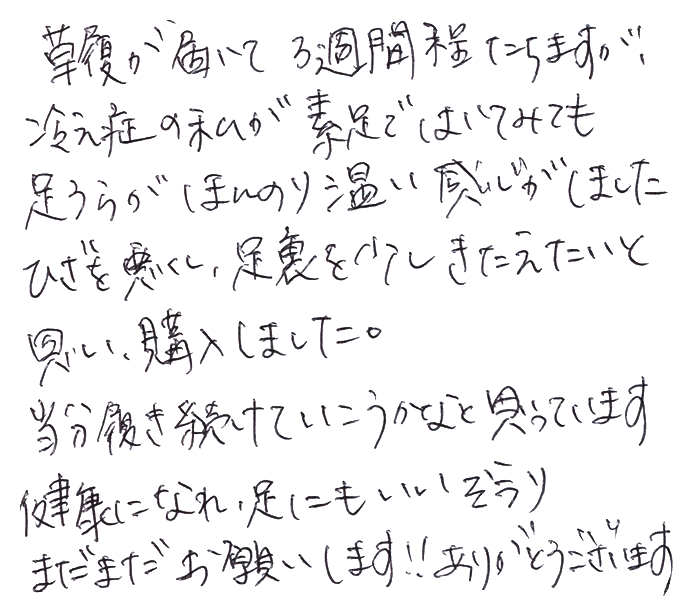 草履が届いて3週間程たちますが、
冷え症の私が素足ではいてみても
足うらがほんのり温い感じがしました
ひざを悪くし、足裏を少しきたえたいと
思い、購入しました。
当分履き続けていこうかなと思っています
健康になれ、足にもいいぞうり
まだまだお願いします!!ありがとうございます